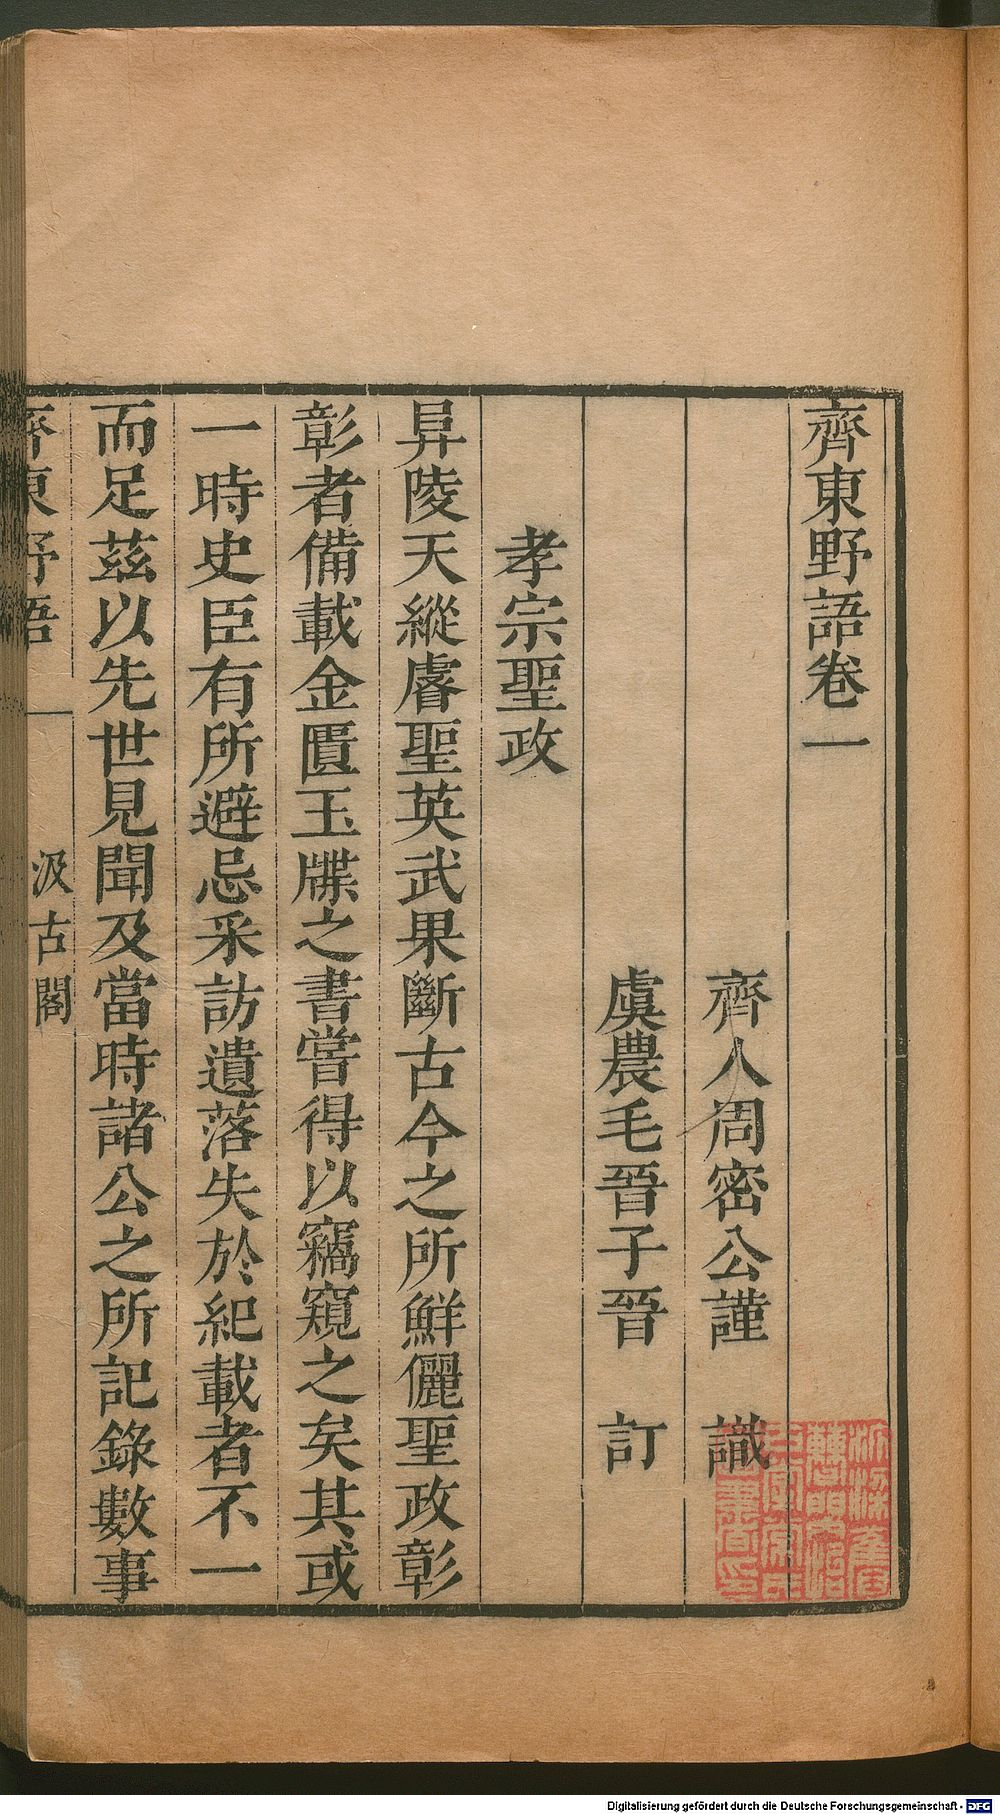 齊東野語卷一
齊人周密公謹　識
虞農毛晉子晉　訂
孝宗聖政
阜陵天縱睿聖英武果斷古今之所鮮儷聖政彰
彰者備載金匱玉牒之書嘗得以竊窺之矣其或
一時史臣有所避忌采訪遺落失於紀載者不一
而足茲以先世見聞及當時諸公之所記錄數事
齊東野語 汲古閣
Digitalisierung gefördert durch die Deutsche Forschungsgemeinschaft - DFG